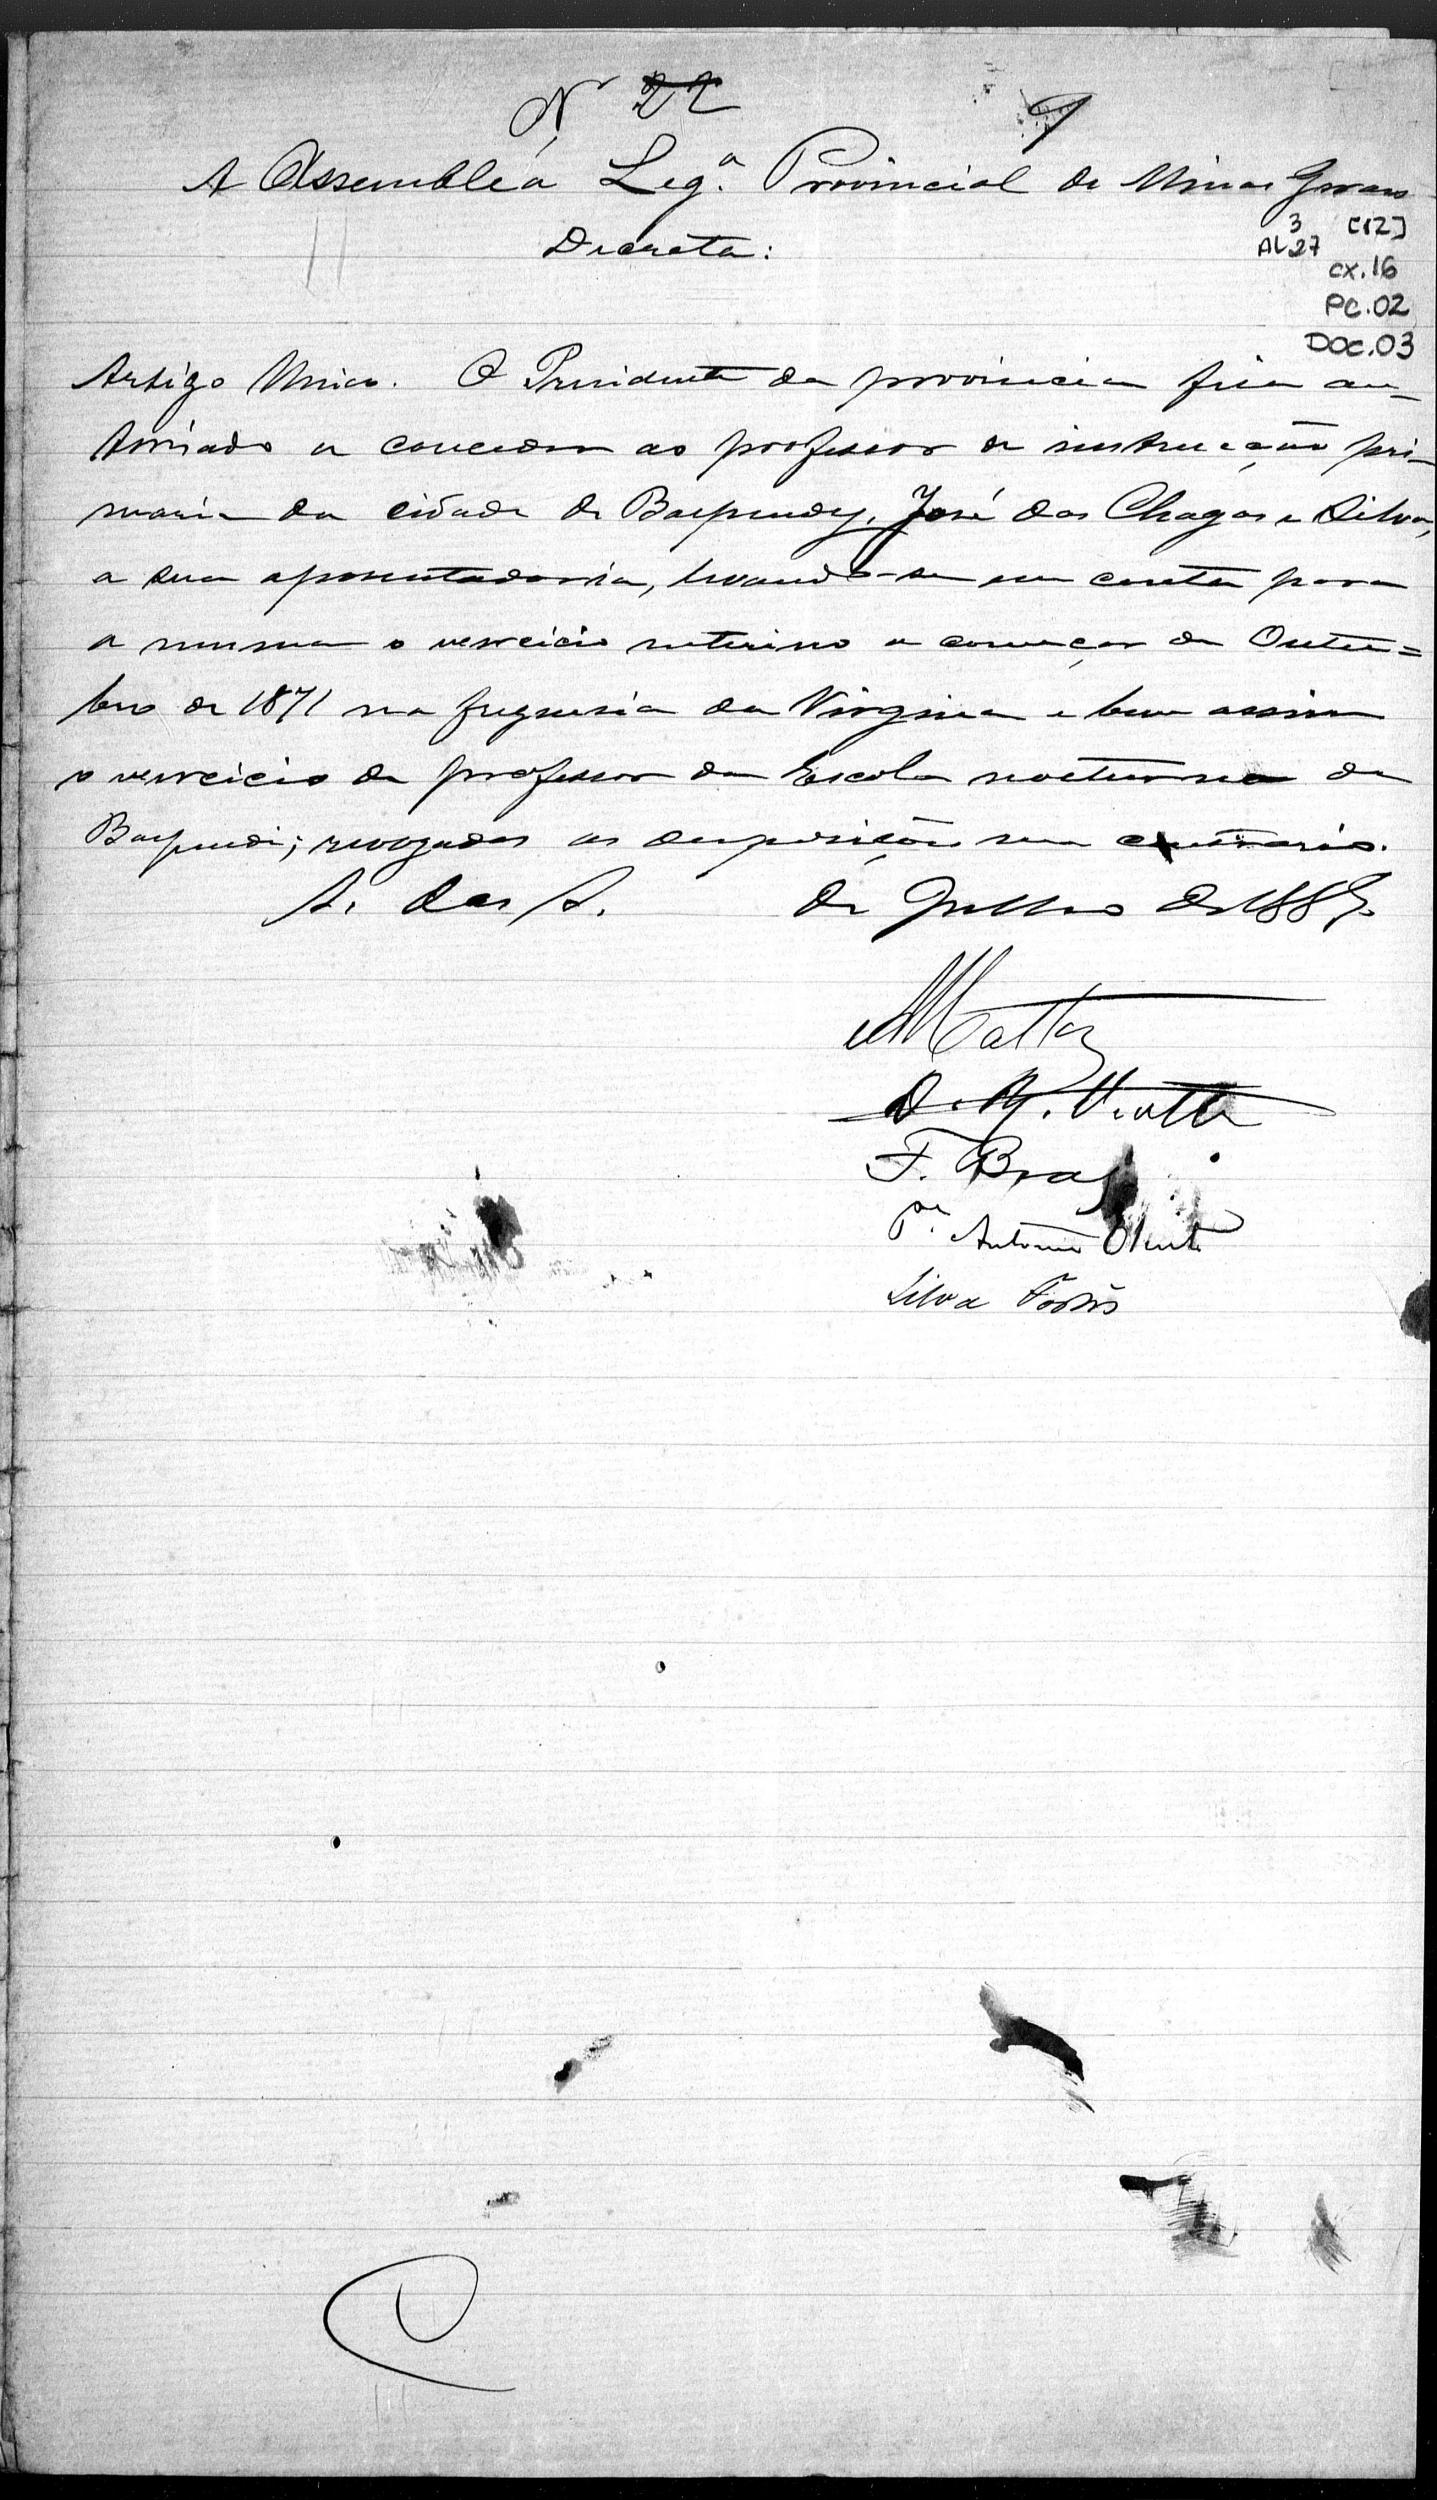 N 22 9
A Assembléa Leg.ª Provincial de Minas Geraes
Decreta:
3 [12]
AL 27
cx.16
PC.02
DOC.03
Artigo Unico. O Presidente da provincia fica au-
torisado a conceder ao professor de instrucção pri-
maria da cidade de Baependy, José das Chagas e Silva,
a sua aposentadoria, levando-se em conta para
a mesma o exercicio interino a começar de Outu=
bro de 1871 na freguesia da Virginia e bem assim
o exercicio de professor da Escola nocturna de
Baependi; revogadas as desposições em contrario.
S. das S. de Julho de 1887
Matta
F. Braz
P.e Antonio
Silva Fortes